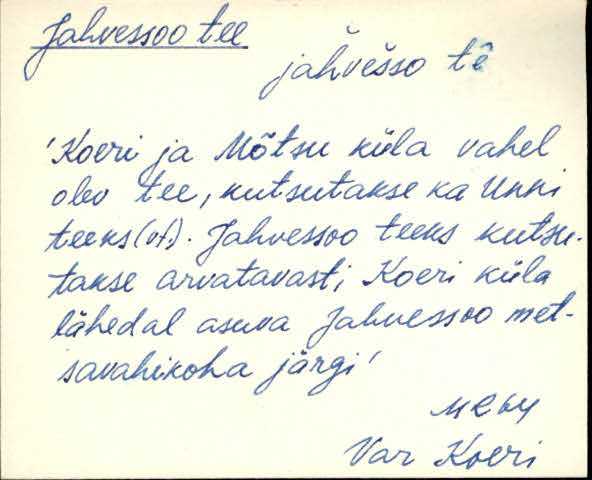 Jahvessoo tee
jahvešso tē
'Koeri ja Mõtsu küla vahel
olev tee, kutsutakse ka Unni
teeks (vt). Jahvessoo teeks kutsu-
takse arvatavasti Koeri küla
lähedal asuva Jahvessoo met-
savahikoha järgi'
MR 64
Var Koeri